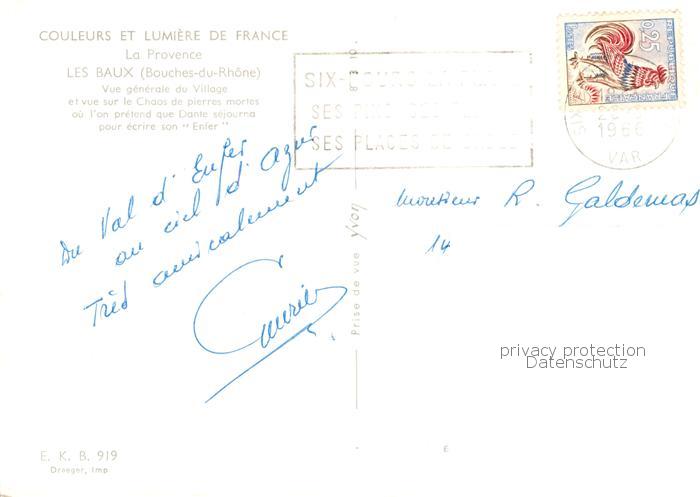 COULEURS ET LUMIÈRE DE FRANCE
La Provence
LES BAUX (Bouches-du-Rhône)
Vue générale du Village
et vue sur le Chaos de pierres mortes
où l'on prétend que Dante séjourna
pour écrire son "Enfer"
SIX-
SES
SES PLAGES DE
0,25
1966
VAR
Du Val d'Enfer
au ciel d'Azur
Très amicalement
Monsieur R. Galdemas
14
Prise de vue yvon
privacy protection
Datenschutz
E. K. B. 919
Draeger, Imp
E